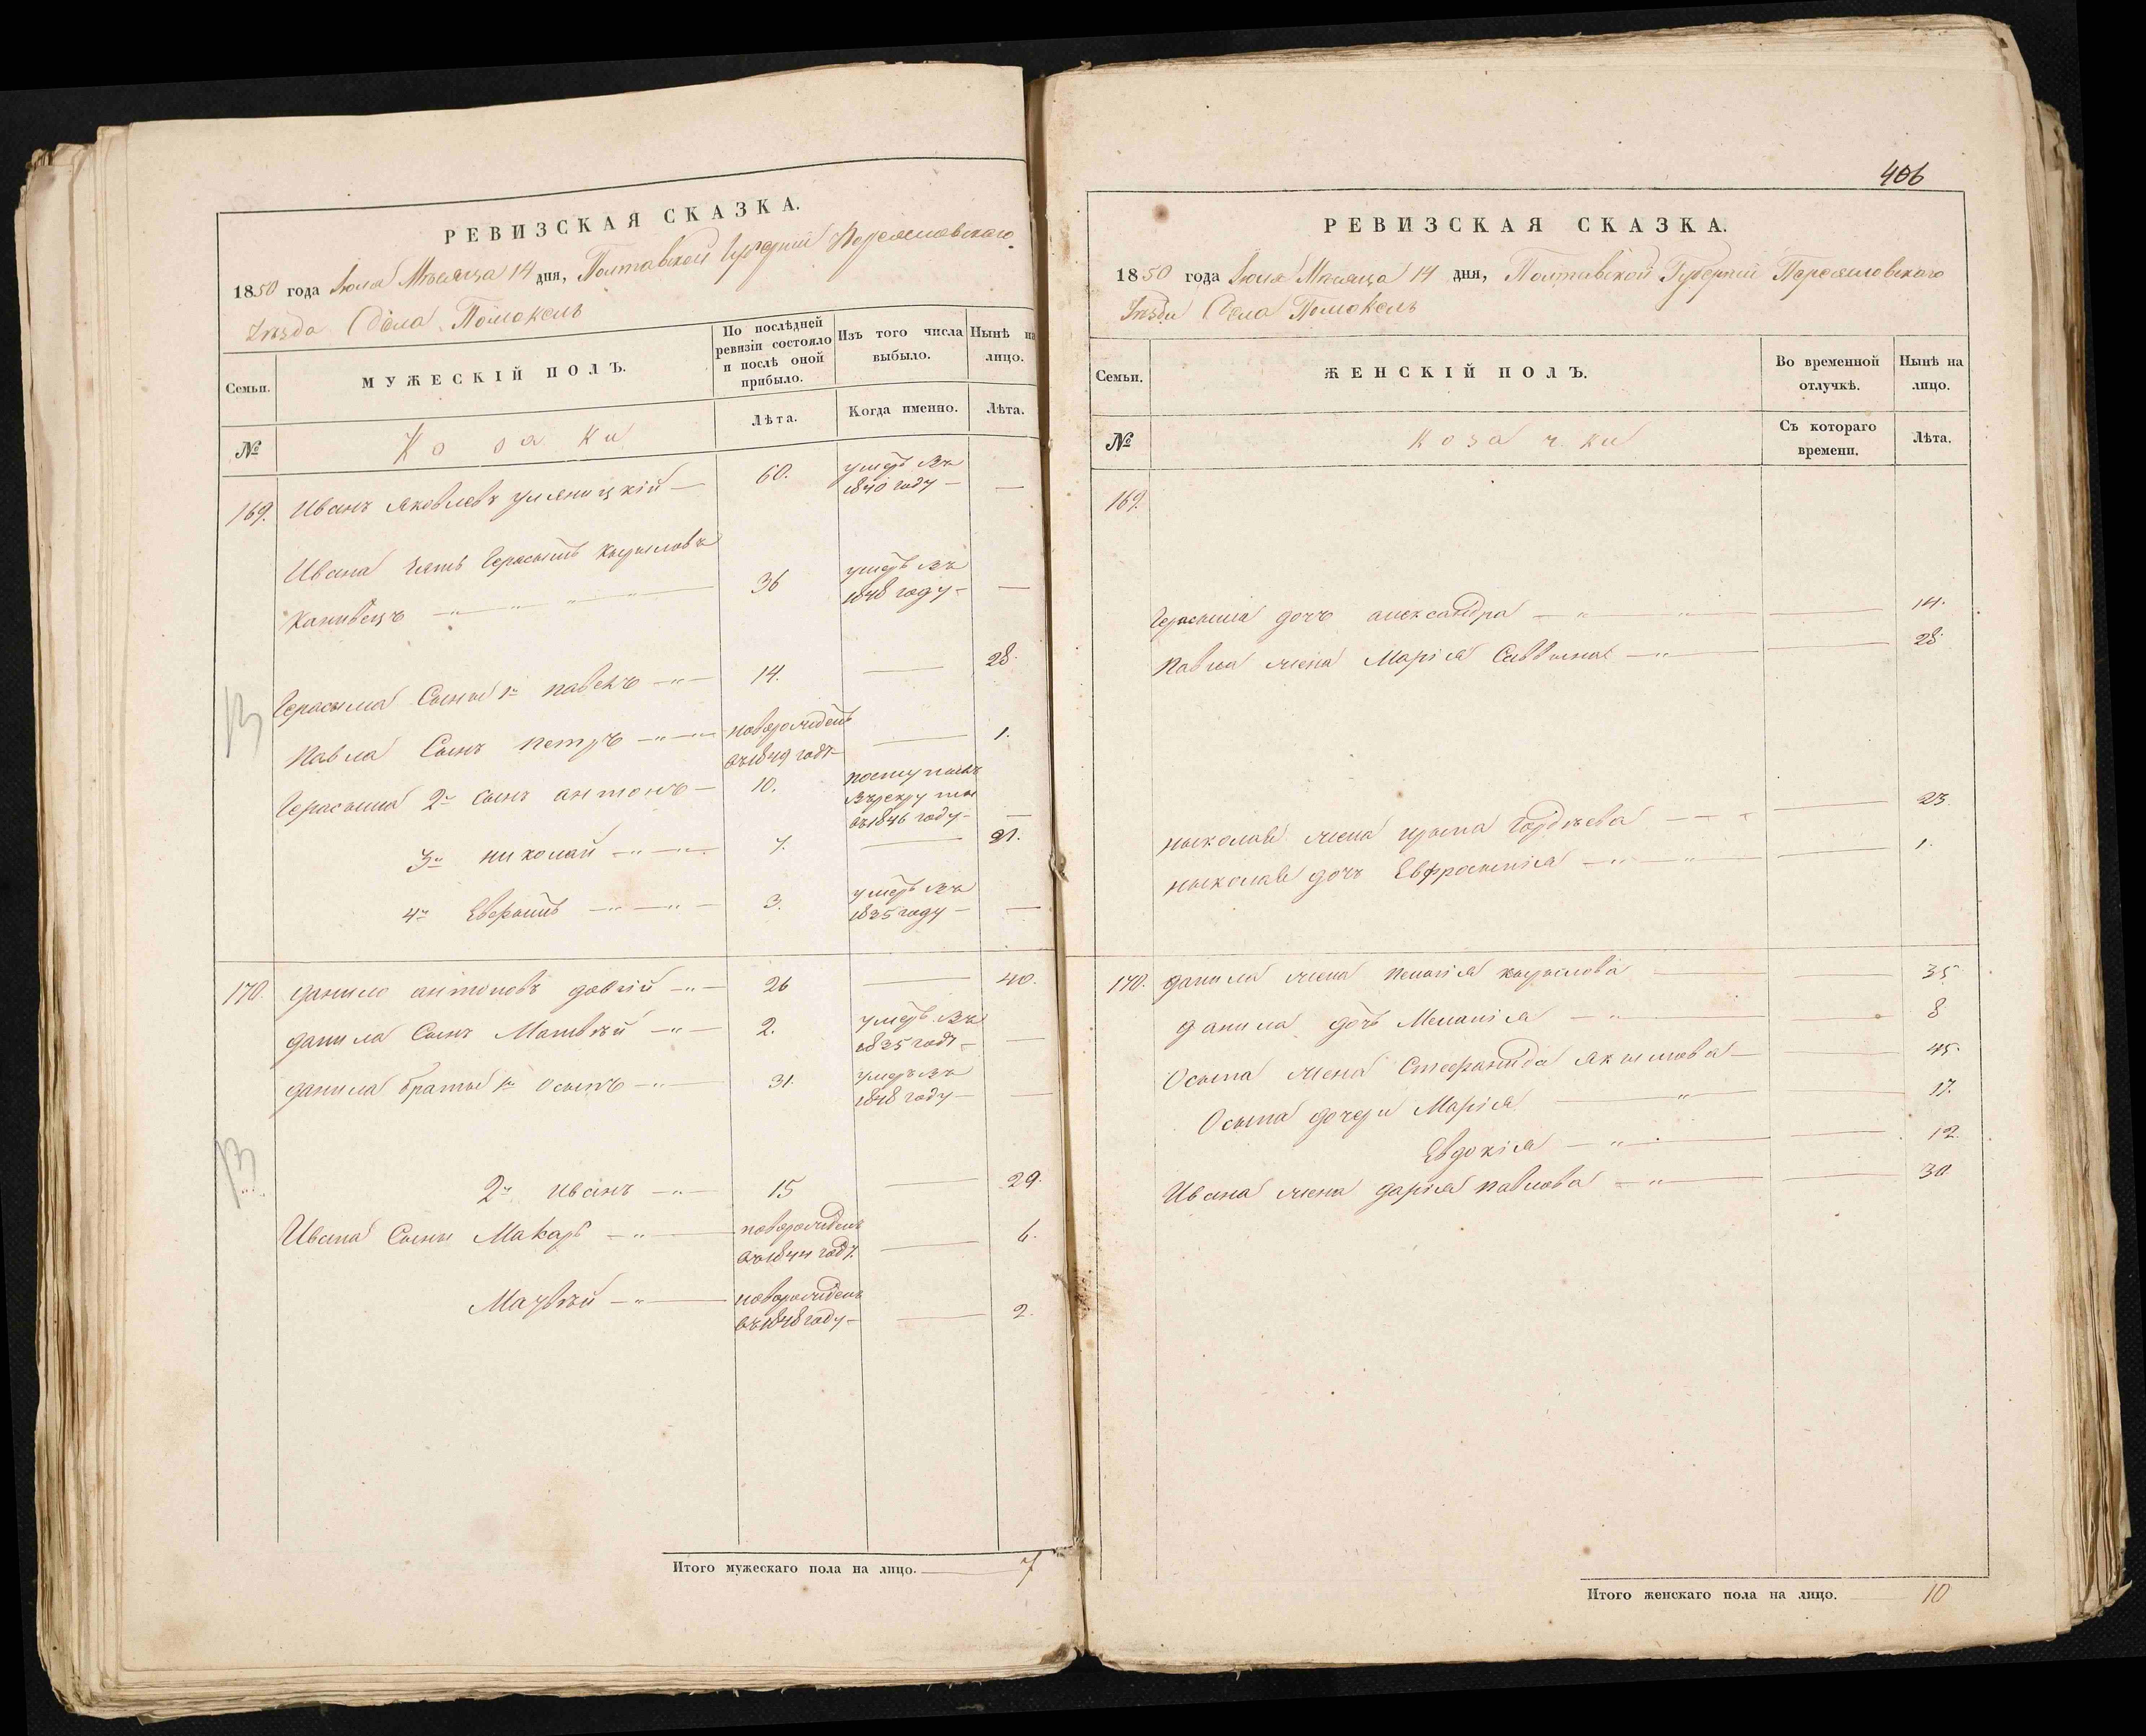 РЕВИЗСКАЯ СКАЗКА.
1850 года Июля Месяца 14 дня, Полтавской Губернии Переясловскаго
Уезда Села Помокель
Семьи.
МУЖЕСКІЙ ПОЛЪ.
По послѣдней ревизіи состояло и послѣ оной прибыло.
Изъ того числа выбыло.
Нынѣ на лицо.
№
Козаки
Лѣта.
Когда именно.
Лѣта.
169. Иванъ Яковлевъ 60. умеръ въ 1840 году —
Ивана зять Герасымъ Кырыловъ
Канивецъ 36 умеръ въ 1848 году —
Герасыма Сыны 1й павелъ 14. — 28.
Павла Сынъ петръ новорожденъ въ 1849 годѣ — 1.
Герасыма 2й сынъ антонъ 10. поступилъ въ рекруты въ 1846 году —
3й николай 7. — 21.
4й 3. умеръ въ 1835 году —
170. данило антоновъ довгій 26 — 40.
данила Сынъ Матвѣй 2. умеръ въ 1835 годѣ —
данила браты 1й Осыпъ 31. умеръ въ 1848 году —
2й иванъ 15 — 29.
Ивана Сыны Макаръ новорожденъ въ 1844 годѣ — 6.
Матвѣй новорожденъ въ 1848 году — 2.
Итого мужескаго пола на лицо. 7
406
РЕВИЗСКАЯ СКАЗКА.
1850 года Июля Месяца 14 дня, Полтавской Губерніи Переясловского
Уезда Села Помокель
Семьи.
ЖЕНСКІЙ ПОЛЪ.
Во временной отлучкѣ.
Нынѣ на лицо.
№
Козачки
Съ котораго времени.
Лѣта.
169.
Герасыма дочь александра — 14.
Павла жена Марія Саввына — 28.
ныколая жена ирына Гордѣева — 23.
ныколая дочь Евфросынія — 1.
170. данила жена пелагія кырылова — 35.
данила дочь Меланія — 8
Осыпа жена Стефанида Якымова — 45.
Осыпа дочери Марія — 17.
Евдокія — 12.
Ивана жена дарія павлова — 30
Итого женскаго пола на лицо. 10